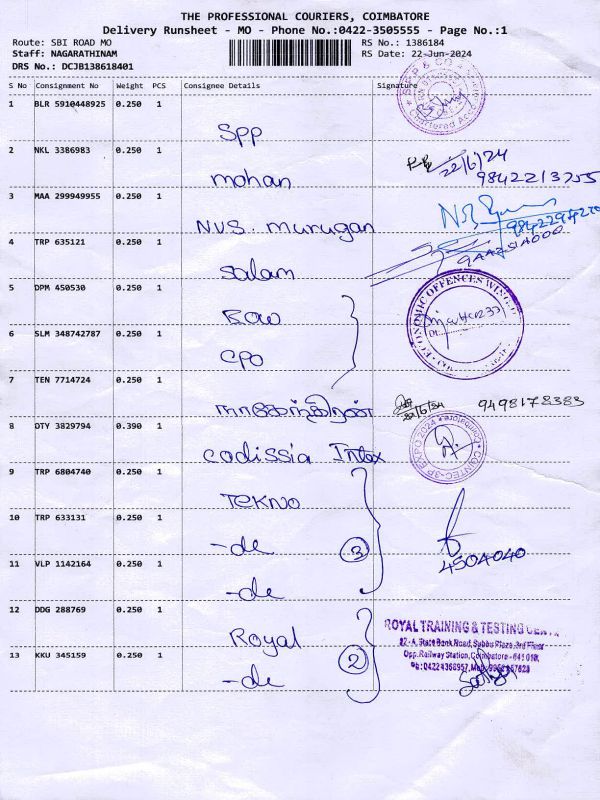 THE PROFESSIONAL COURIERS, COIMBATORE
Delivery Runsheet - MO - Phone No.:0422-3505555 - Page No.:1
Route: SBI ROAD MO
RS No.: 1386184
Staff: NAGARATHINAM
RS Date: 22-Jun-2024
DRS No.: DCJB138618401
S No Consignment No Weight PCS Consignee Details Signature
1 BLR 5910448925 0.250 1
SPP
2 NKL 3386983 0.250 1
22/6/24
mohan 9842213755
3 MAA 299949955 0.250 1
NVS. murugan
4 TRP 635121 0.250 1
Salam
5 DPM 450530 0.250 1
ECONOMIC OFFENCES WING
EOW
6 SLM 348742787 0.250 1
CPO
7 TEN 7714724 0.250 1
22/6/24 9498178383
8 OTY 3829794 0.390 1
codissia Intex
9 TRP 6804740 0.250 1
TEKNO
10 TRP 633131 0.250 1
-do 3
4504040
11 VLP 1142164 0.250 1
-do
12 DDG 288769 0.250 1
Royal
ROYAL TRAINING & TESTING
22-A, State Bank Road, Subbu Plaza, 3rd Floor
Opp. Railway Station, Coimbatore - 641 018.
13 KKU 345159 0.250 1
-do 2